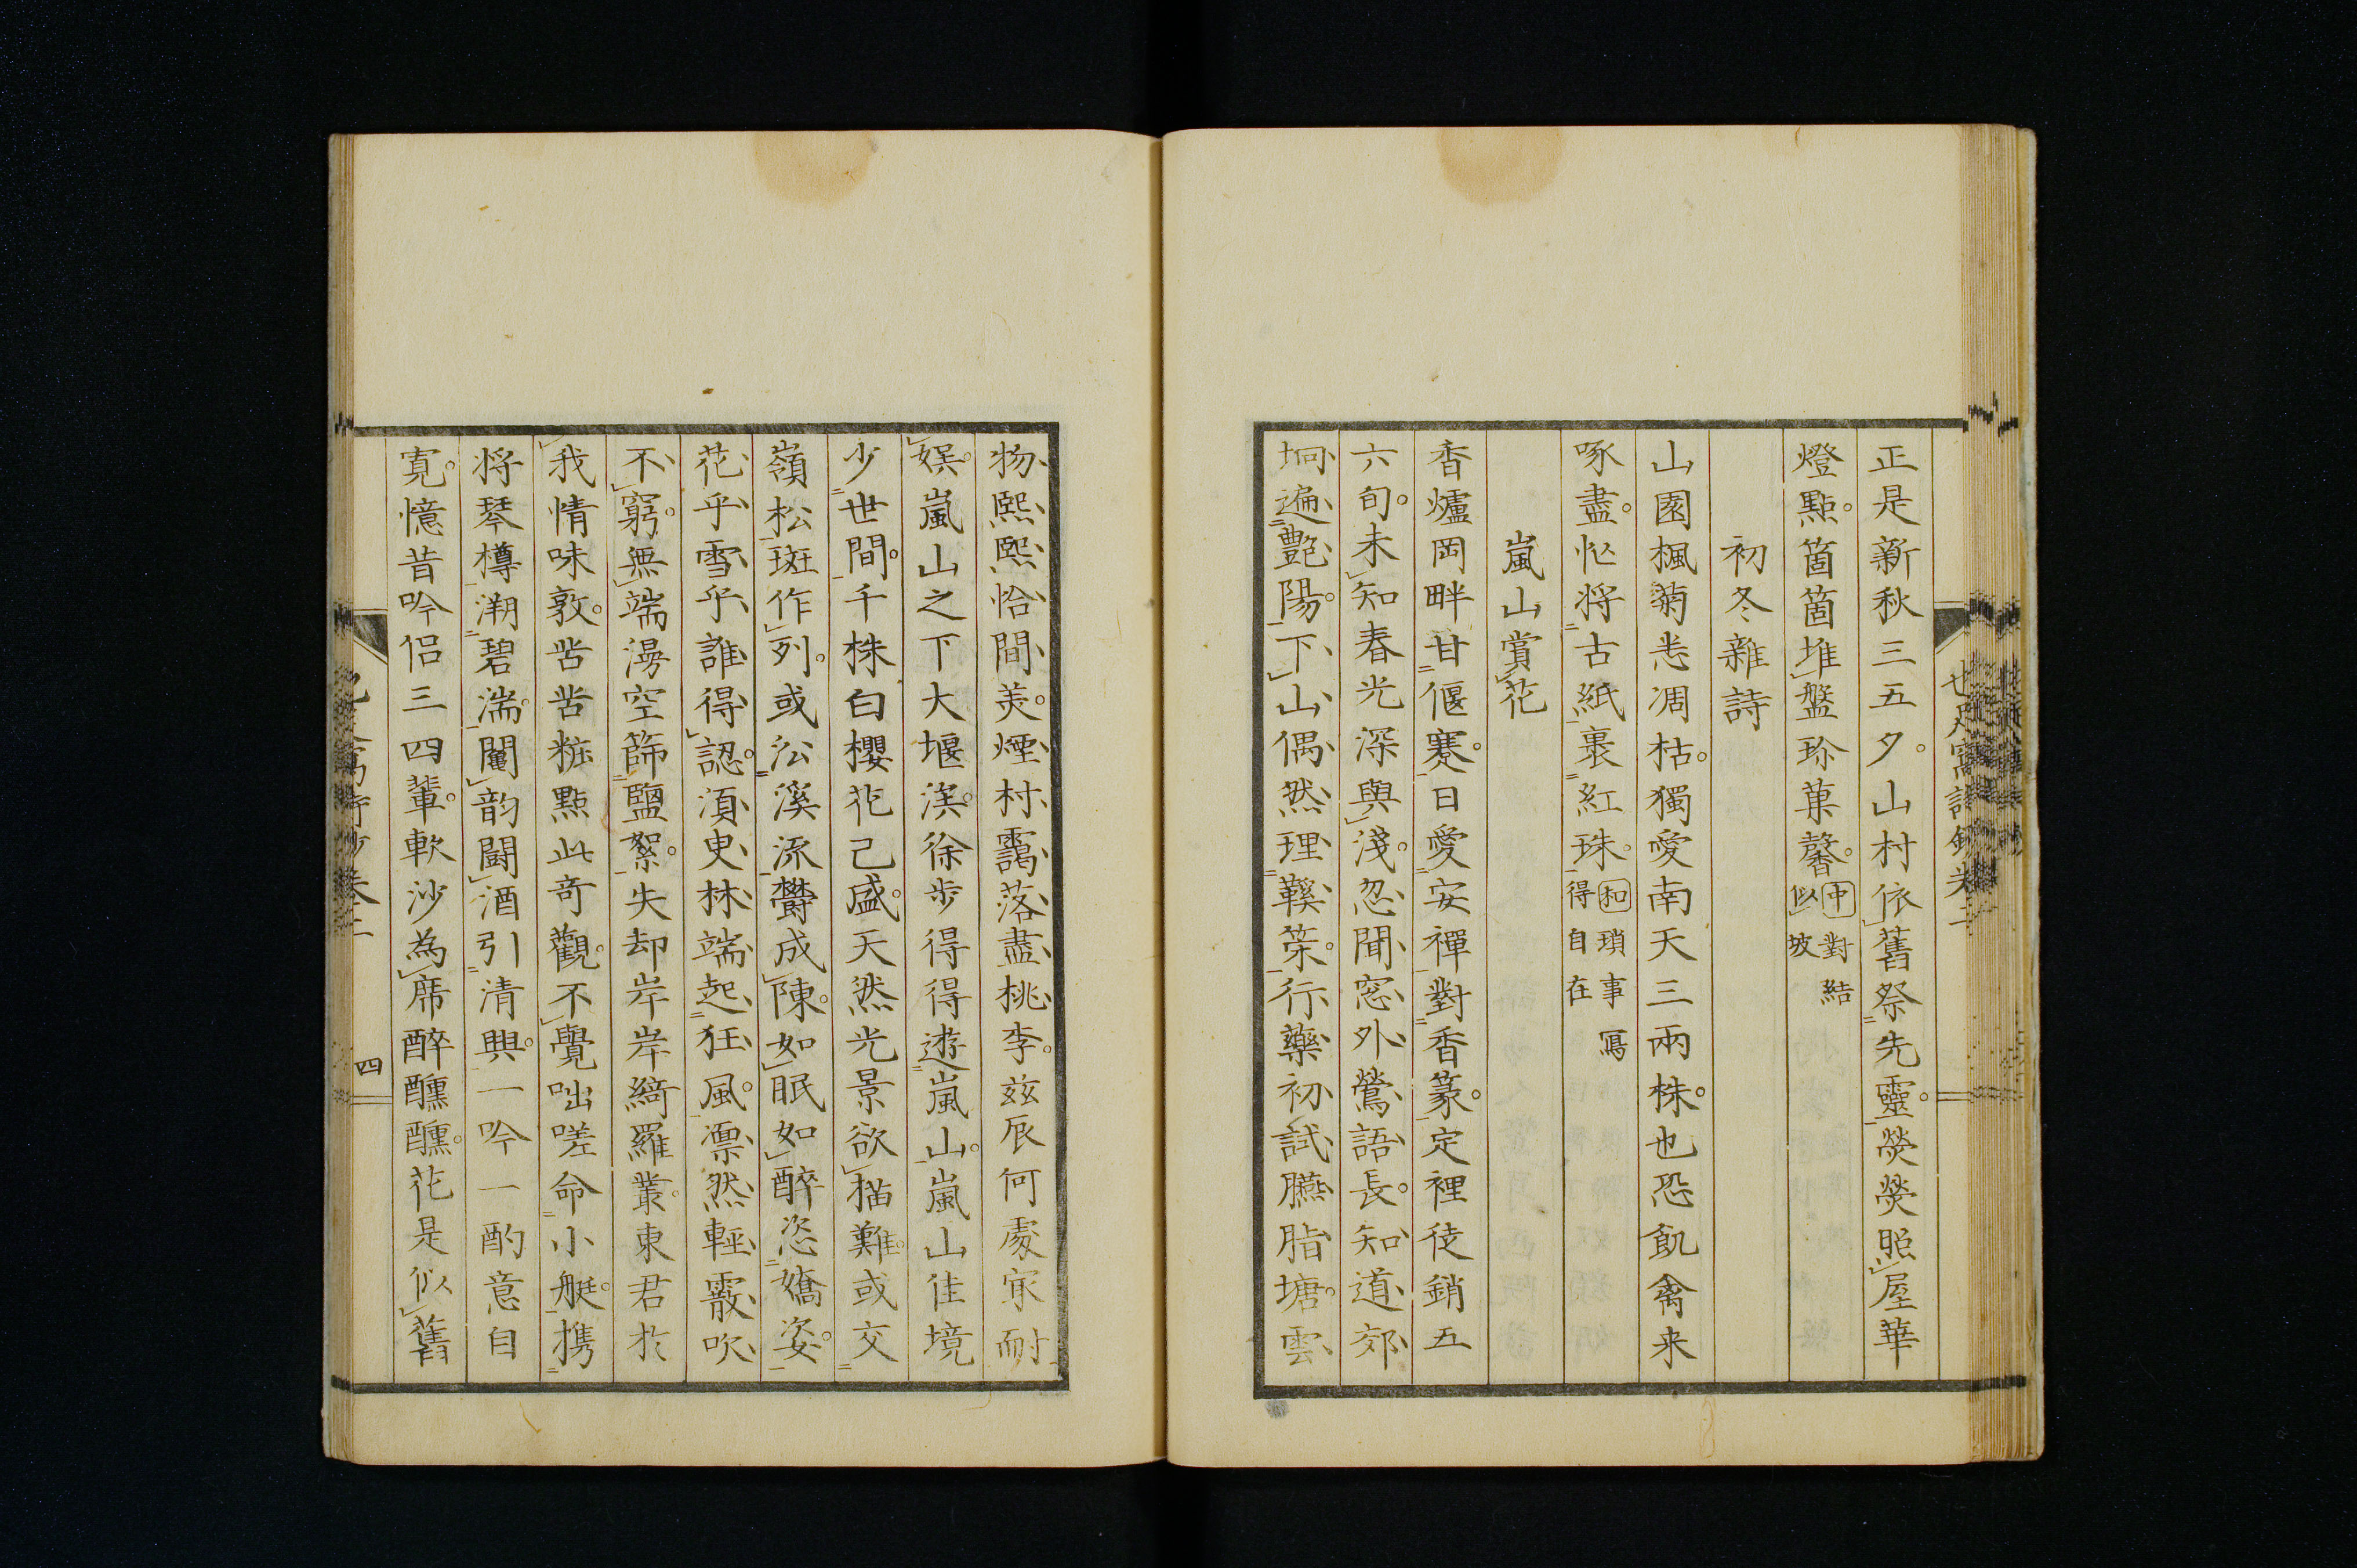 正是新秋三五夕。山村依舊祭先靈。熒熒照屋華
燈點。箇箇堆盤珍菓馨。中對結
似坡
初冬雜詩
山園楓菊恙凋枯。獨愛南天三兩株。也恐飢禽来
啄盡。忙將古紙裹紅珠。和瑣事寫
得自在
嵐山賞花
香爐岡畔甘偃蹇。日愛安禪對香篆。定裡徒銷五
六旬。未知春光深與淺。忽聞窓外鶯語長。知道郊
坰遍艷陽。下山偶然理鞵筞。行藥初試臙脂塘。雲
物熙熙恰間美。煙村靄落盡桃李。茲辰何處㝡耐
娯。嵐山之下大堰渼。徐歩得得遊嵐山。嵐山佳境
少世間。千株白櫻花已盛。天然光景欲描難。或交
嶺松斑作列。或沿溪流欝成陳。如眠如醉恣嬌姿。
花乎雪乎誰得認。湏臾林端起狂風。凛然輕霰吹
不窮。無端漫空篩鹽絮。失却岸岸綺羅叢。東君於
我情味敦。苦苦粧點此奇觀。不覺咄嗟命小艇。携
將琴樽溯碧湍。鬮韵鬪酒引清興。一吟一酌意自
寛。憶昔吟侣三四輩。軟沙為席醉醺醺。花是似舊
四